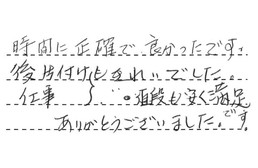 時間に正確で良かったです。
後片付けもきれいでした。
仕事 } 。値段も安く満足です。
ありがとうございました。